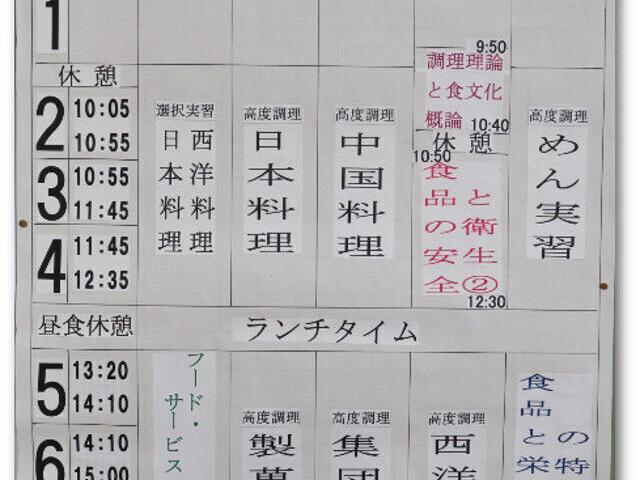 1
9:50
調理理論
と食文化
概論
10:40
休憩
2
10:05
10:55
選択実習
西洋料理
日本料理
高度調理
日本料理
高度調理
中国料理
休憩
10:50
食品の安全
と衛生②
12:30
高度調理
めん実習
3
10:55
11:45
4
11:45
12:35
昼食休憩
ランチタイム
5
13:20
14:10
フード・
サービス
高度調理
製菓
高度調理
集団
高度調理
西洋
食品と栄
の特
6
14:10
15:00